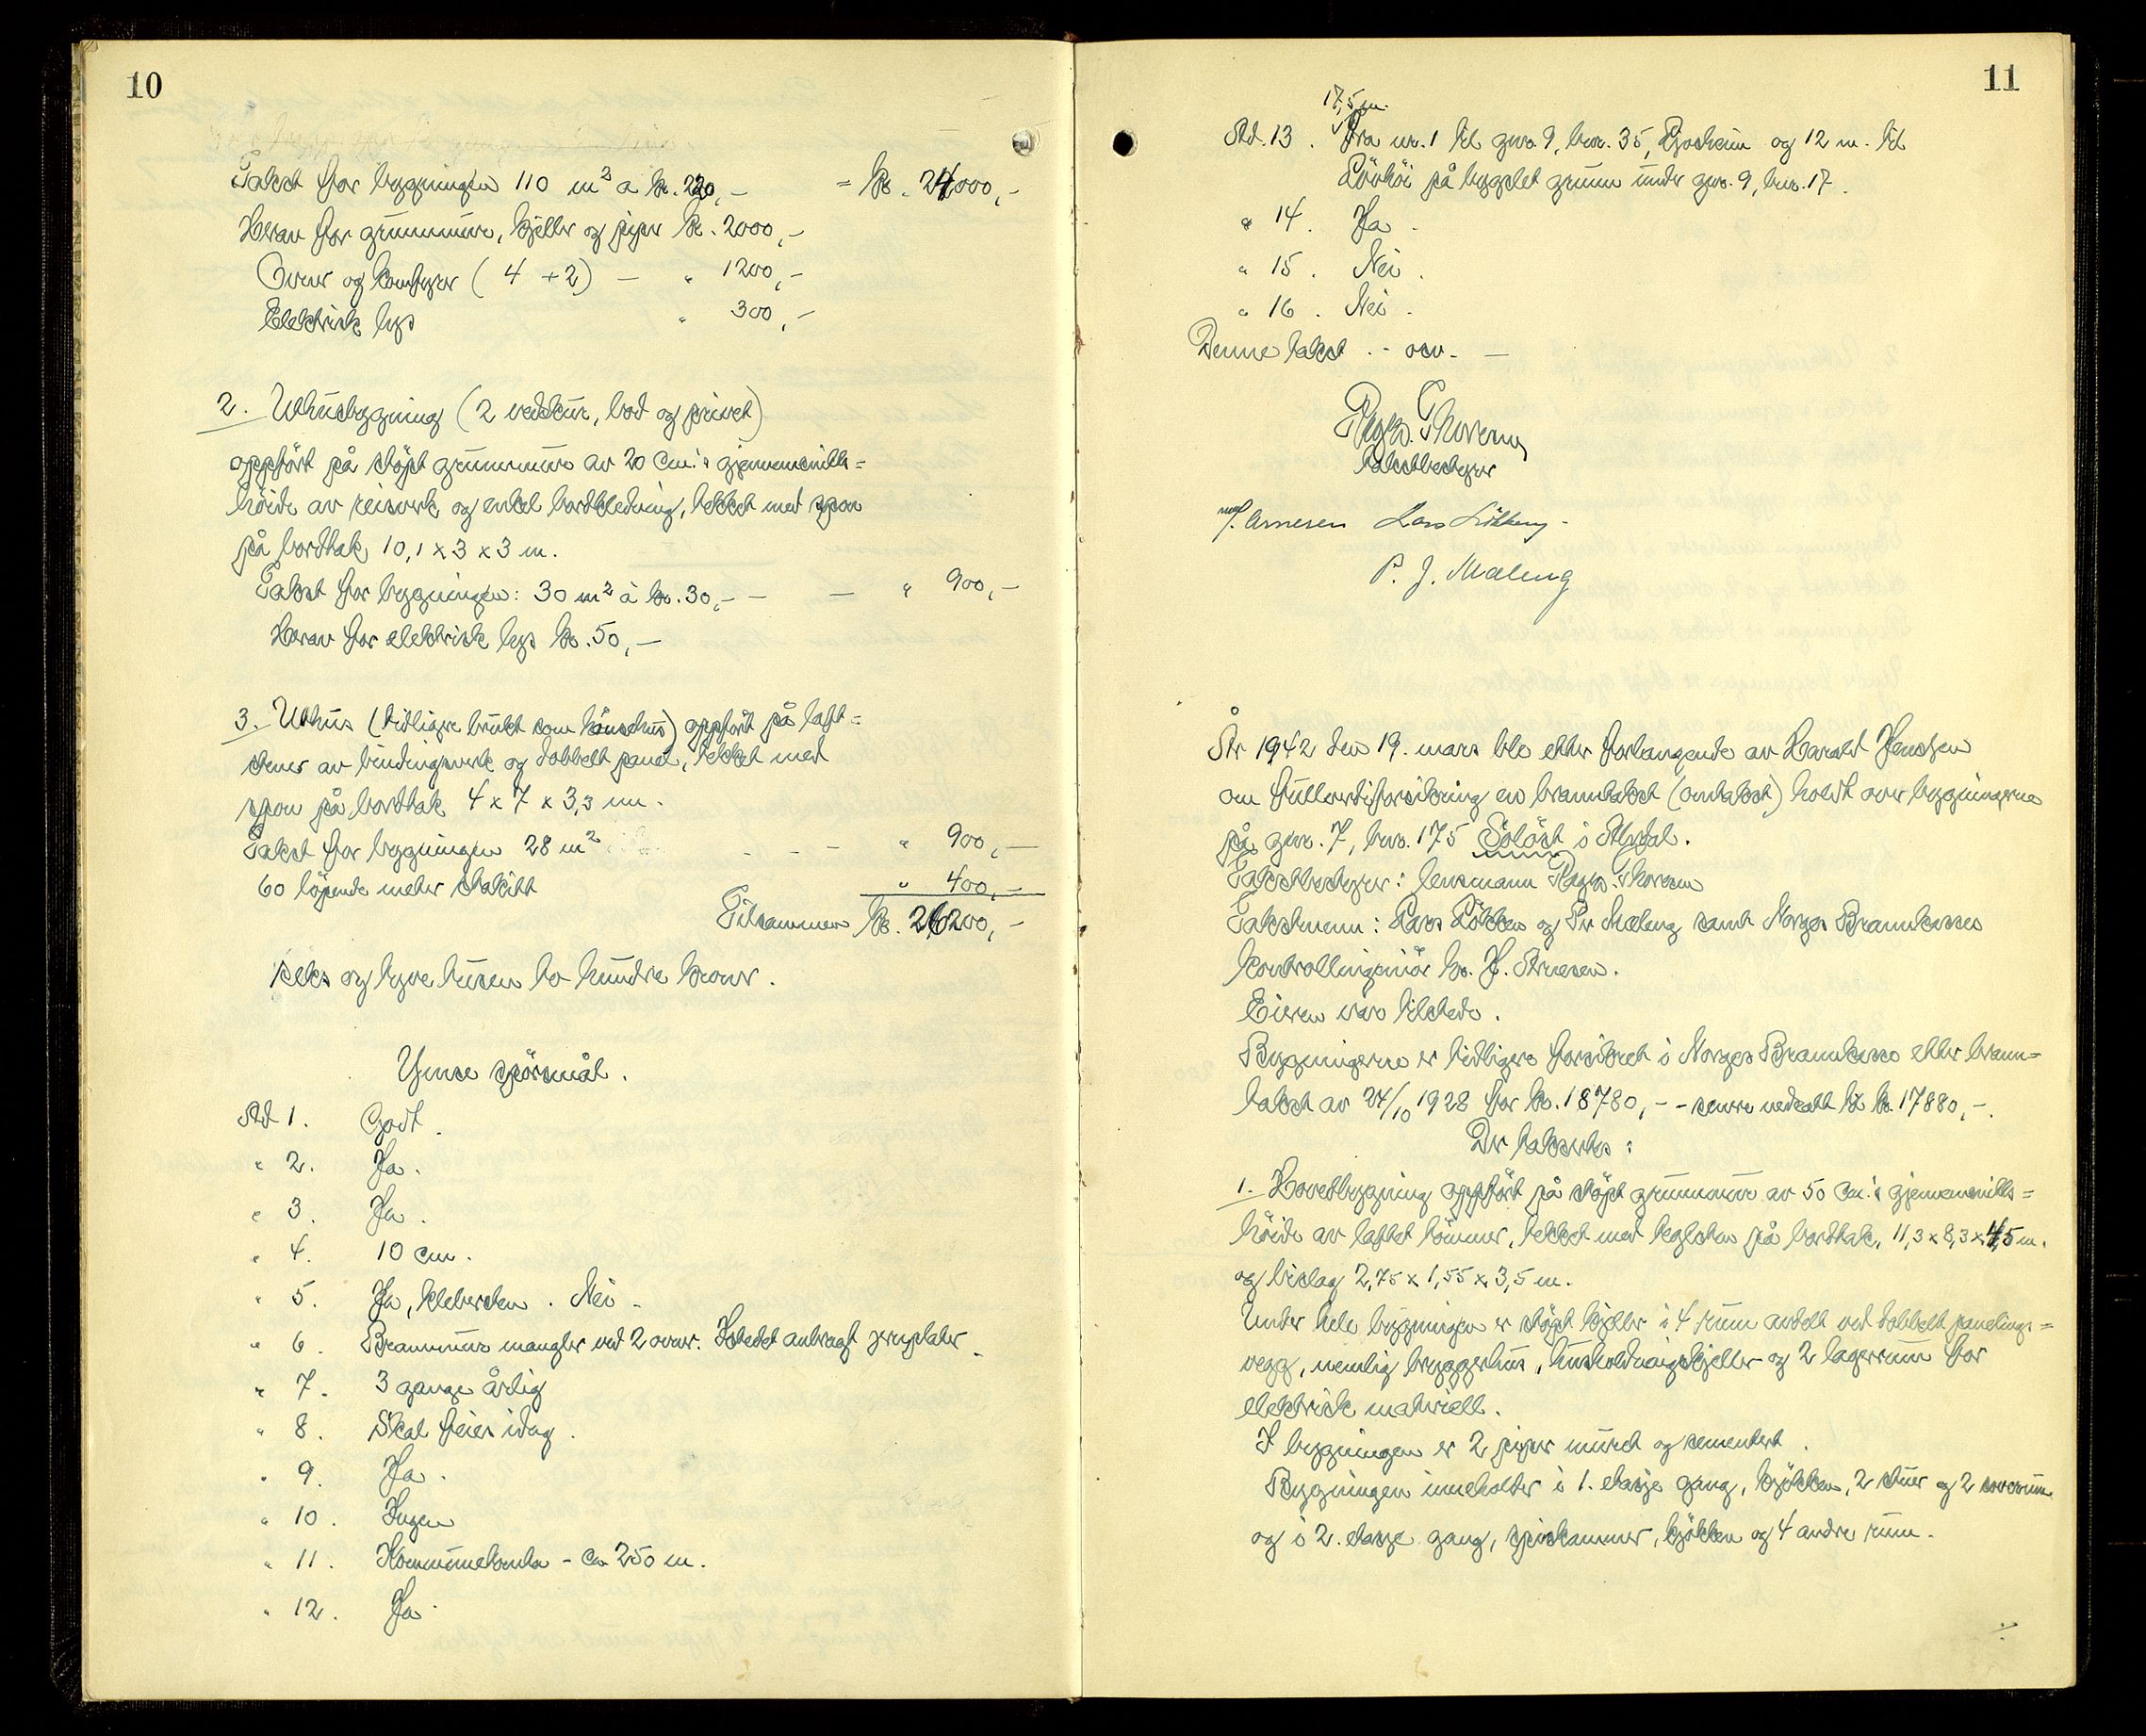 10
Takst for bygningen 110 m² a kr. 220,- = kr. 24000,-
Herav for grunnmure, kjeller og piper kr. 2000,-
Ovner og komfyrer (4 + 2) — " 1200,-
Elektrisk lys " 300,-
2. Uthusbygning (2 vedskur, bod og privet)
oppført på støpt grunnmur av 20 cm.'s gjennemsnitts=
høide av reisverk og enkel bordkledning, tekket med spon
på bordtak 10,1 x 3 x 3 m.
Takst for bygningen: 30 m² à kr. 30,- — — " 900,-
Herav for elektrisk lys kr. 50,-
3. Uthus (tidligere brukt som hønsehus) oppført på laft=
stener av bindingsverk og dobbelt panel, tekket med
spon på bordtak 4 x 7 x 3,3 m.
Takst for bygningen 28 m² - - - " 900,-
60 løpende meter stakitt " 400,-
Tilsammen kr. 26200,-
seks og tyve tusen to hundre kroner.
Ymse spørsmål.
Ad 1. Godt.
" 2. Ja.
" 3. Ja.
" 4. 10 cm.
" 5. Ja, klebersten. Nei.
" 6. Brannmur mangler ved 2 ovner. Isteden anbragt jernplater.
" 7. 3 gange årlig
" 8. Skal feies idag.
" 9. Ja.
" 10. Ingen
" 11. Kommunelomba - ca 250 m.
" 12. Ja.
11
17,5 m.
Ad. 13. Fra nr. 1 til gnr. 9, bnr. 35, og 12 m. til
på bygslet grunn under gnr. 9, bnr. 17.
" 14. Ja.
" 15. Nei.
" 16. Nei.
Denne takst . - osv. —
Ragn. Thoresen
takstbestyrer
J. Arnesen Lars Løkken
P. J. Mæleng
År 1942 den 19. mars ble etter forlangende av Harald Jenssen
om fullverdiforsikring en branntakst (omtakst) holdt over bygningerne
på gnr. 7, bnr. 175 Soløst i Alvdal.
Takstbestyrer: lensmann Ragn. Thoresen
Takstmenn: Lars Løkken og Per Mæleng samt Norges Brannkasses
kontrollingeniør hr. J. Arnesen.
Eieren var tilstede.
Bygningerne er tidligere forsikret i Norges Brannkasse etter brann=
takst av 24/10 1928 for kr. 18780,- - senere nedsatt til kr. 17880,-.
Der takseres:
1. Hovedbygning oppført på støpt grunnmur av 50 cm.'s gjennemsnitts=
høide av laftet tømmer, tekket med teglsten på bordtak, 11,3 x 8,3 x 4,5 m.
og bislag 2,75 x 1,55 x 3,5 m.
Under hele bygningen er støpt kjeller i 4 rum avdelt ved dobbelt panelings=
vegg, nemlig bryggerhus, husholdningskjeller og 2 lagerrum for
elektrisk materiell.
I bygningen er 2 piper muret og sementert.
Bygningen inneholder i 1. etasje gang, kjøkken, 2 stuer og 2 soverum
og i 2. etasje gang, spiskammer, kjøkken og 4 andre rum.
./.